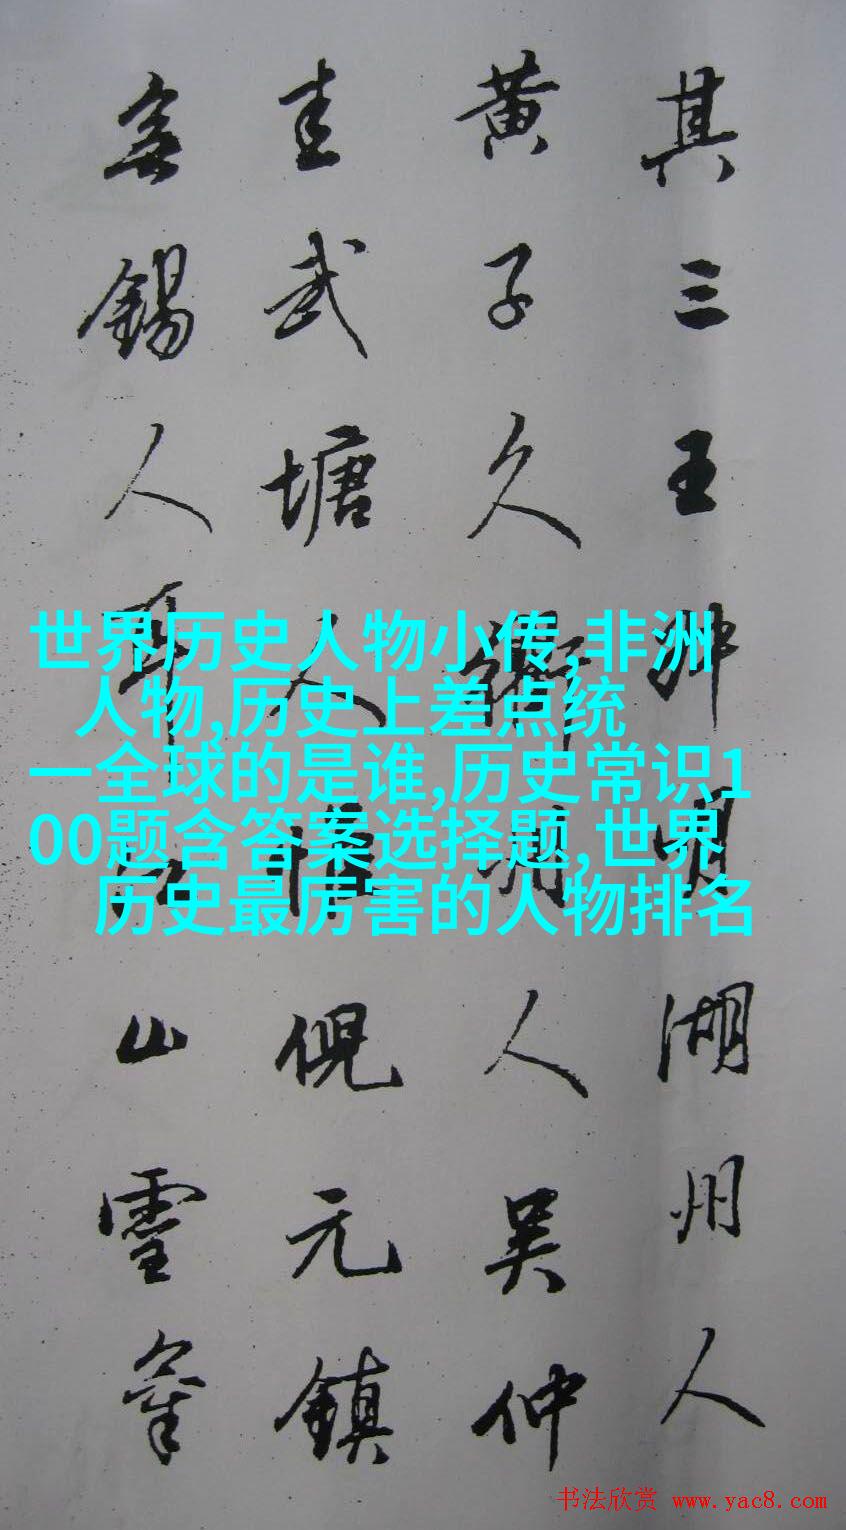 其三王叔明湖州人
黄子久衢州人吴仲
圭武塘人惟倪元鎮
無錫人耳江山靈
世界历史人物小传,非洲
人物,历史上差点统
一全球的是谁,历史常识1
00题含答案选择题,世界
历史最厉害的人物排名
书法欣赏 www.yac8.com